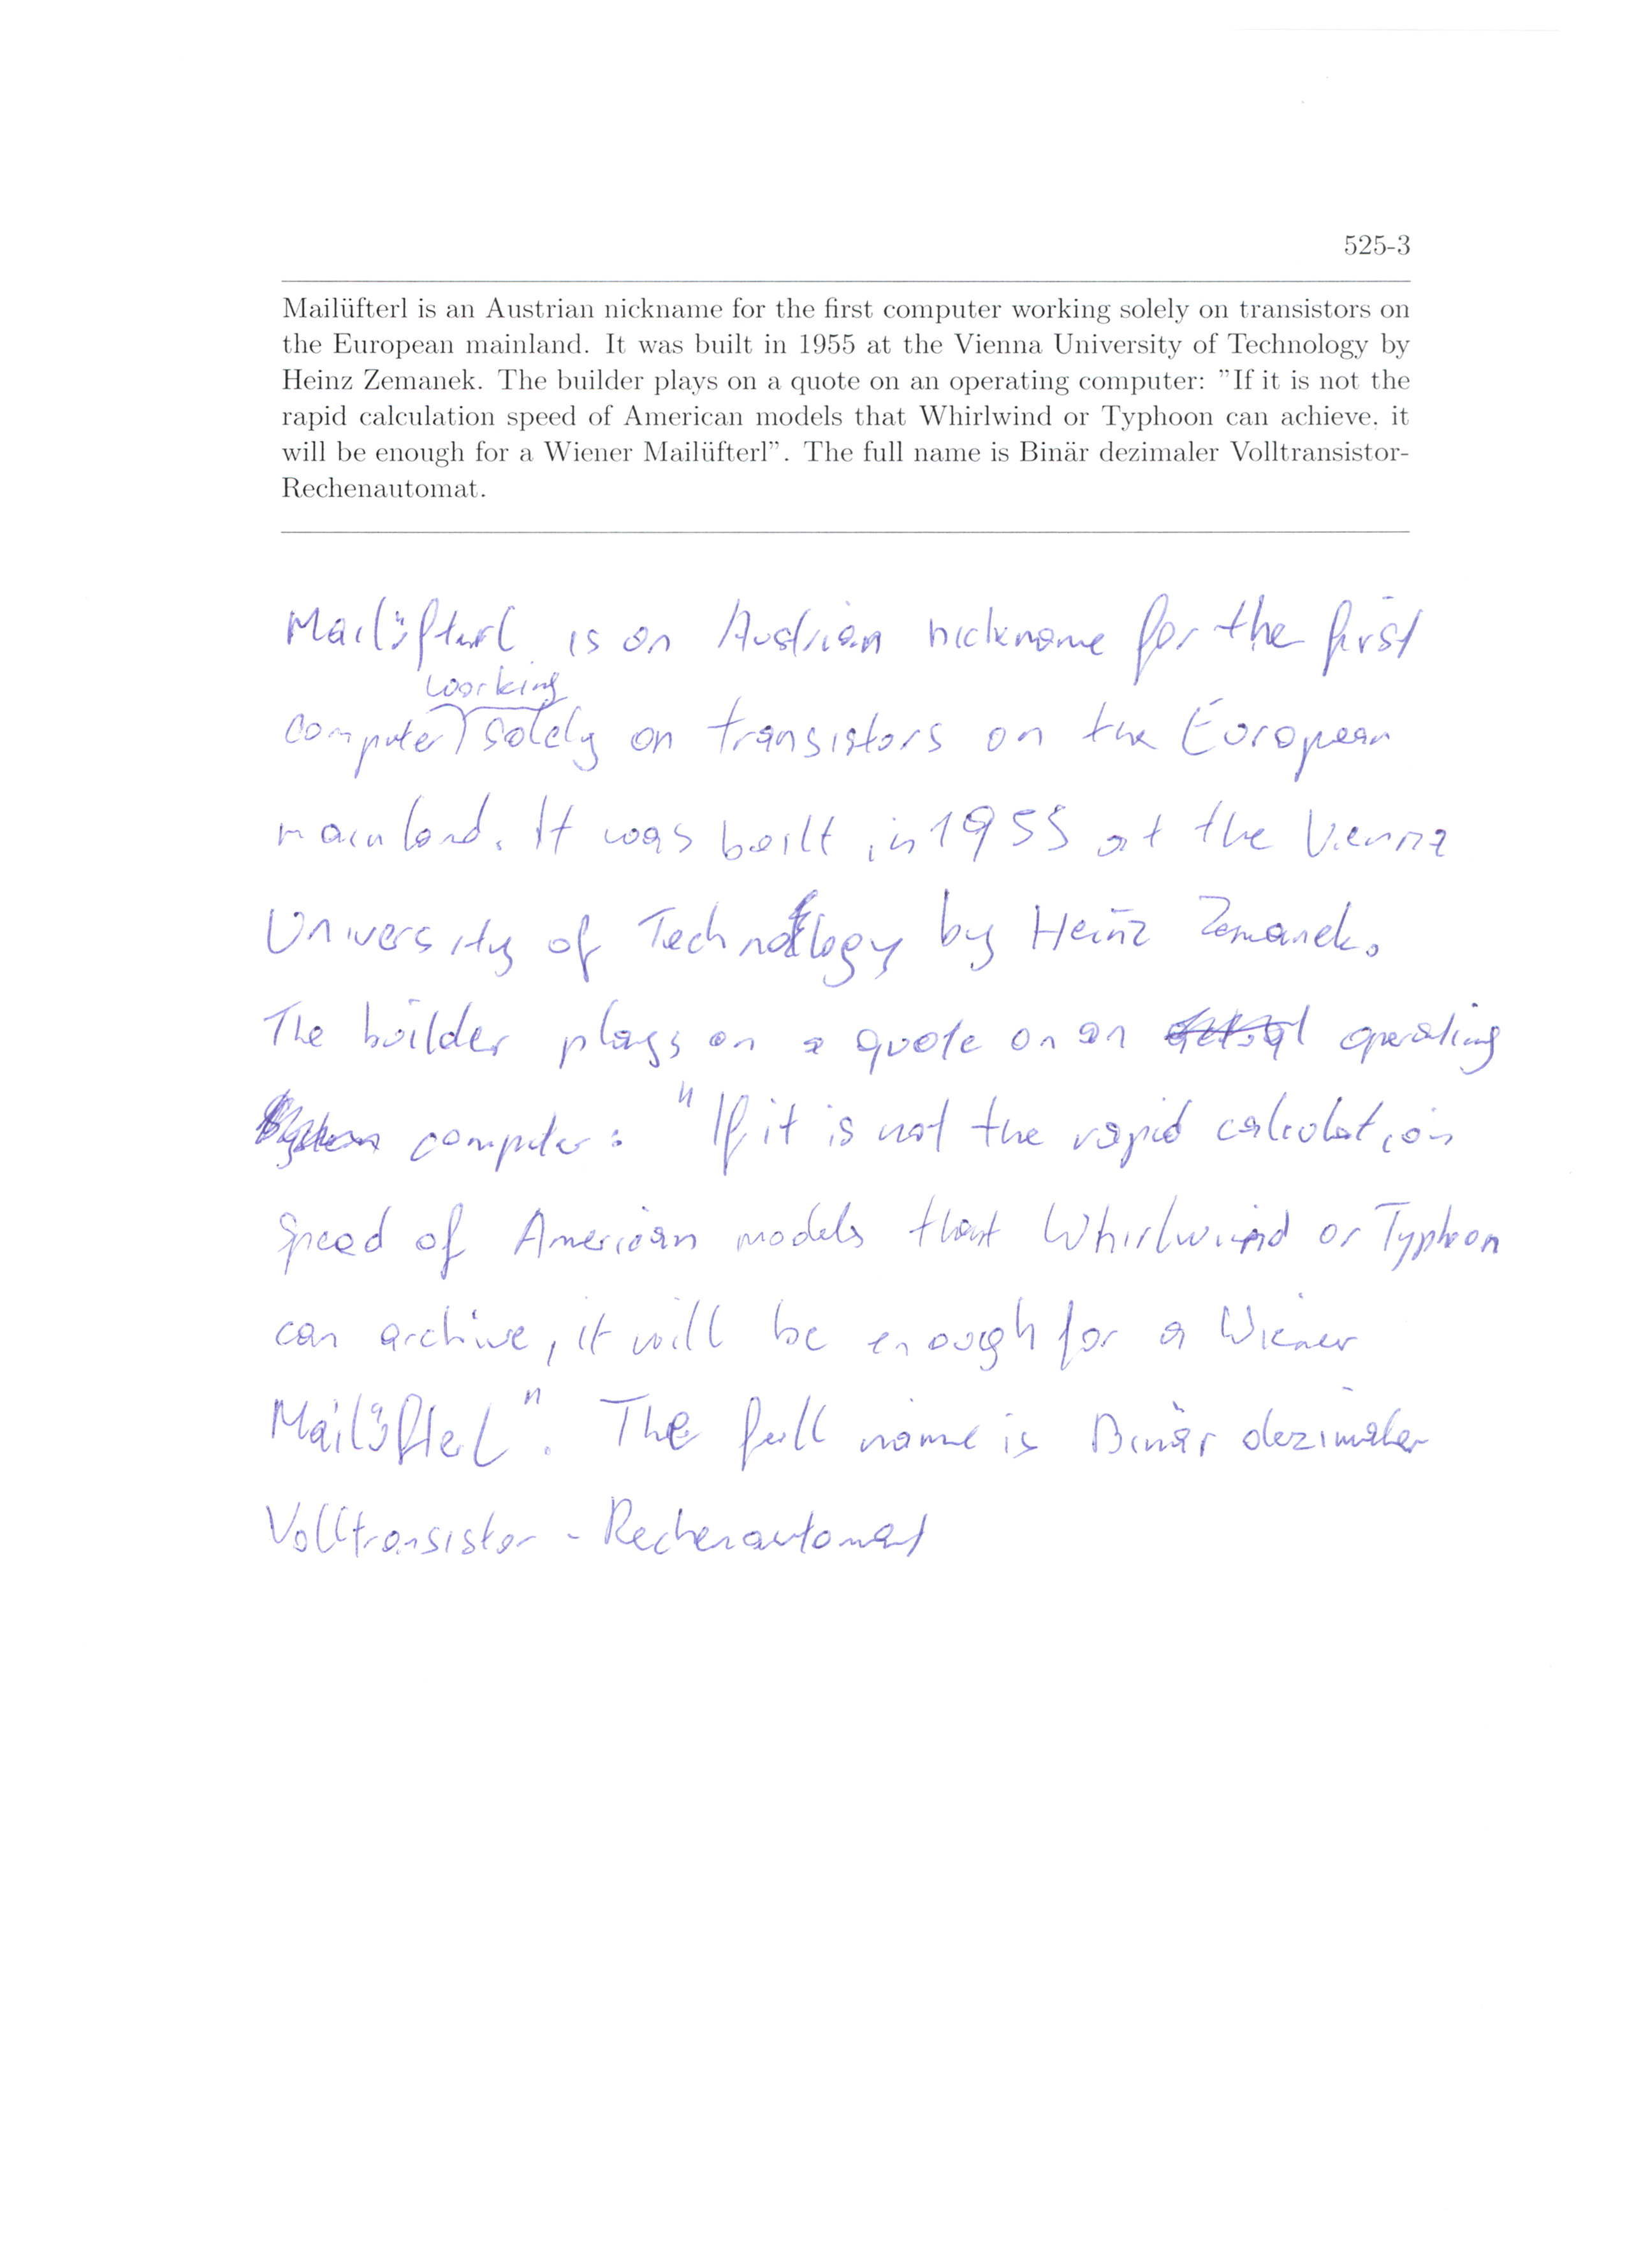 525-3
Mailüfterl is an Austrian nickname for the first computer working solely on transistors on
the European mainland. It was built in 1955 at the Vienna University of Technology by
Heinz Zemanek. The builder plays on a quote on an operating computer: ”If it is not the
rapid calculation speed of American models that Whirlwind or Typhoon can achieve, it
will be enough for a Wiener Mailüfterl”. The full name is Binär dezimaler Volltransistor-
Rechenautomat.
Mailüfterl is an Austrian nickname for the first
working
computer solely on transistors on the European
mainland. It was built in 1955 at the Vienna
University of Technology by Heinz Zemanek.
The builder plays on a quote on an operating
computer: "If it is not the rapid calculation
speed of American models that Whirlwind or Typhoon
can archive, it will be enough for a Wiener
Mailüfterl". The full name is Binär dezimaler
Volltransistor - Rechenautomat